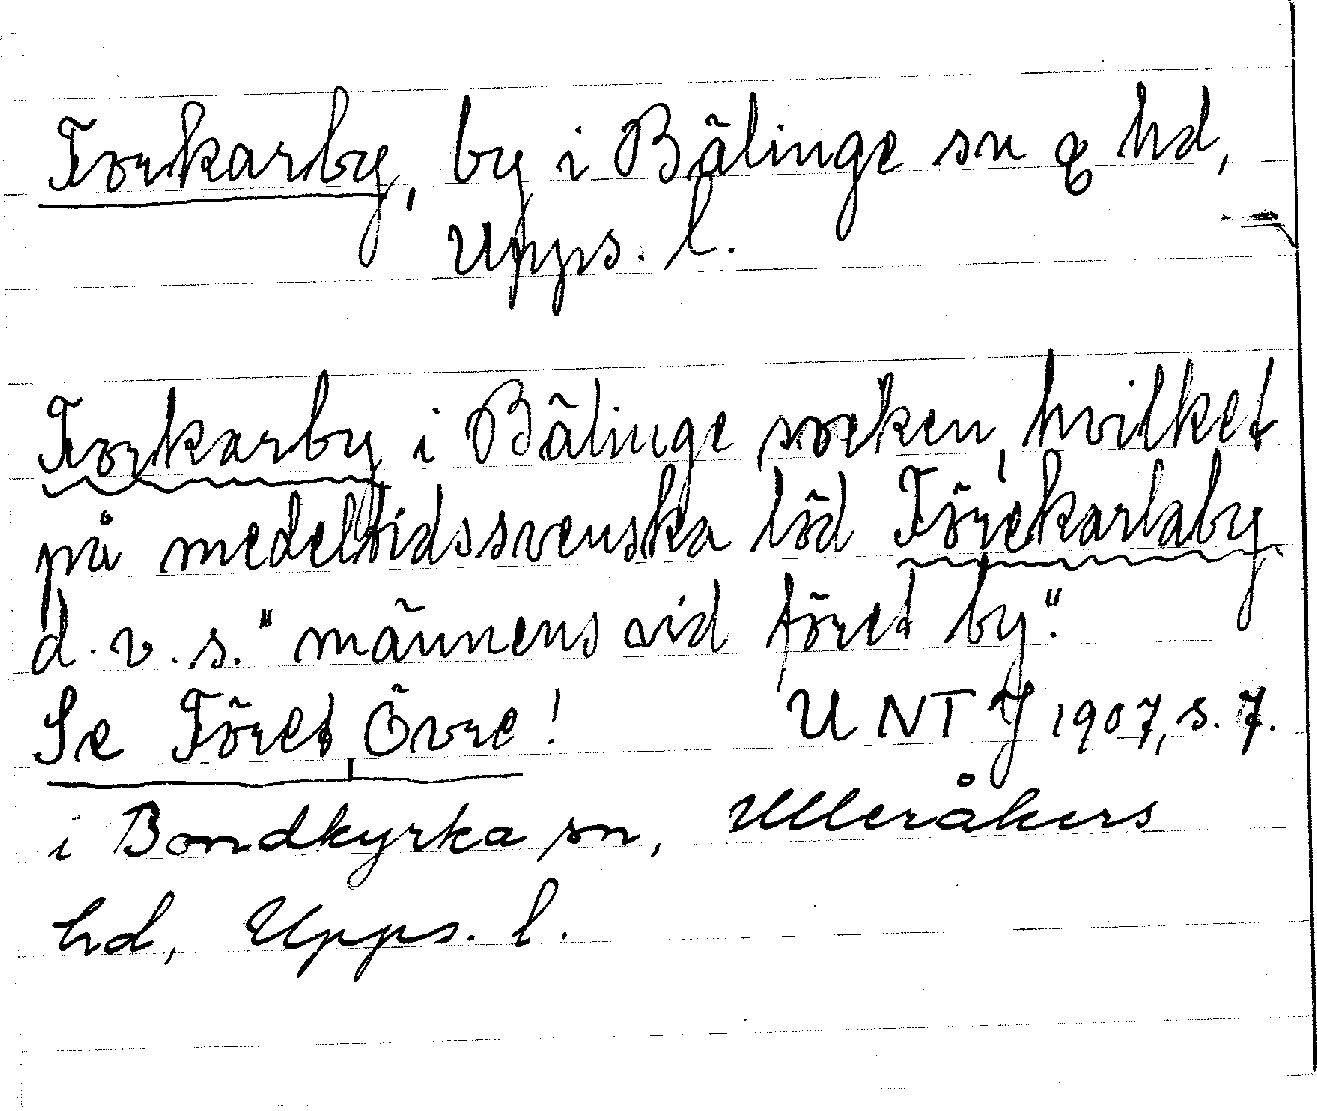 Forkarby, by i Bälinge sn o hd,
Upps. l.
Forkarby i Bälinge socken, hvilket
på medeltidssvenska löd Förekarlaby
d.v.s. "männens vid föret by."
Se Föret, Övre! UNT J 1907, s. 7.
i Bondkyrka sn, Ulleråkers
hd, Upps. l.